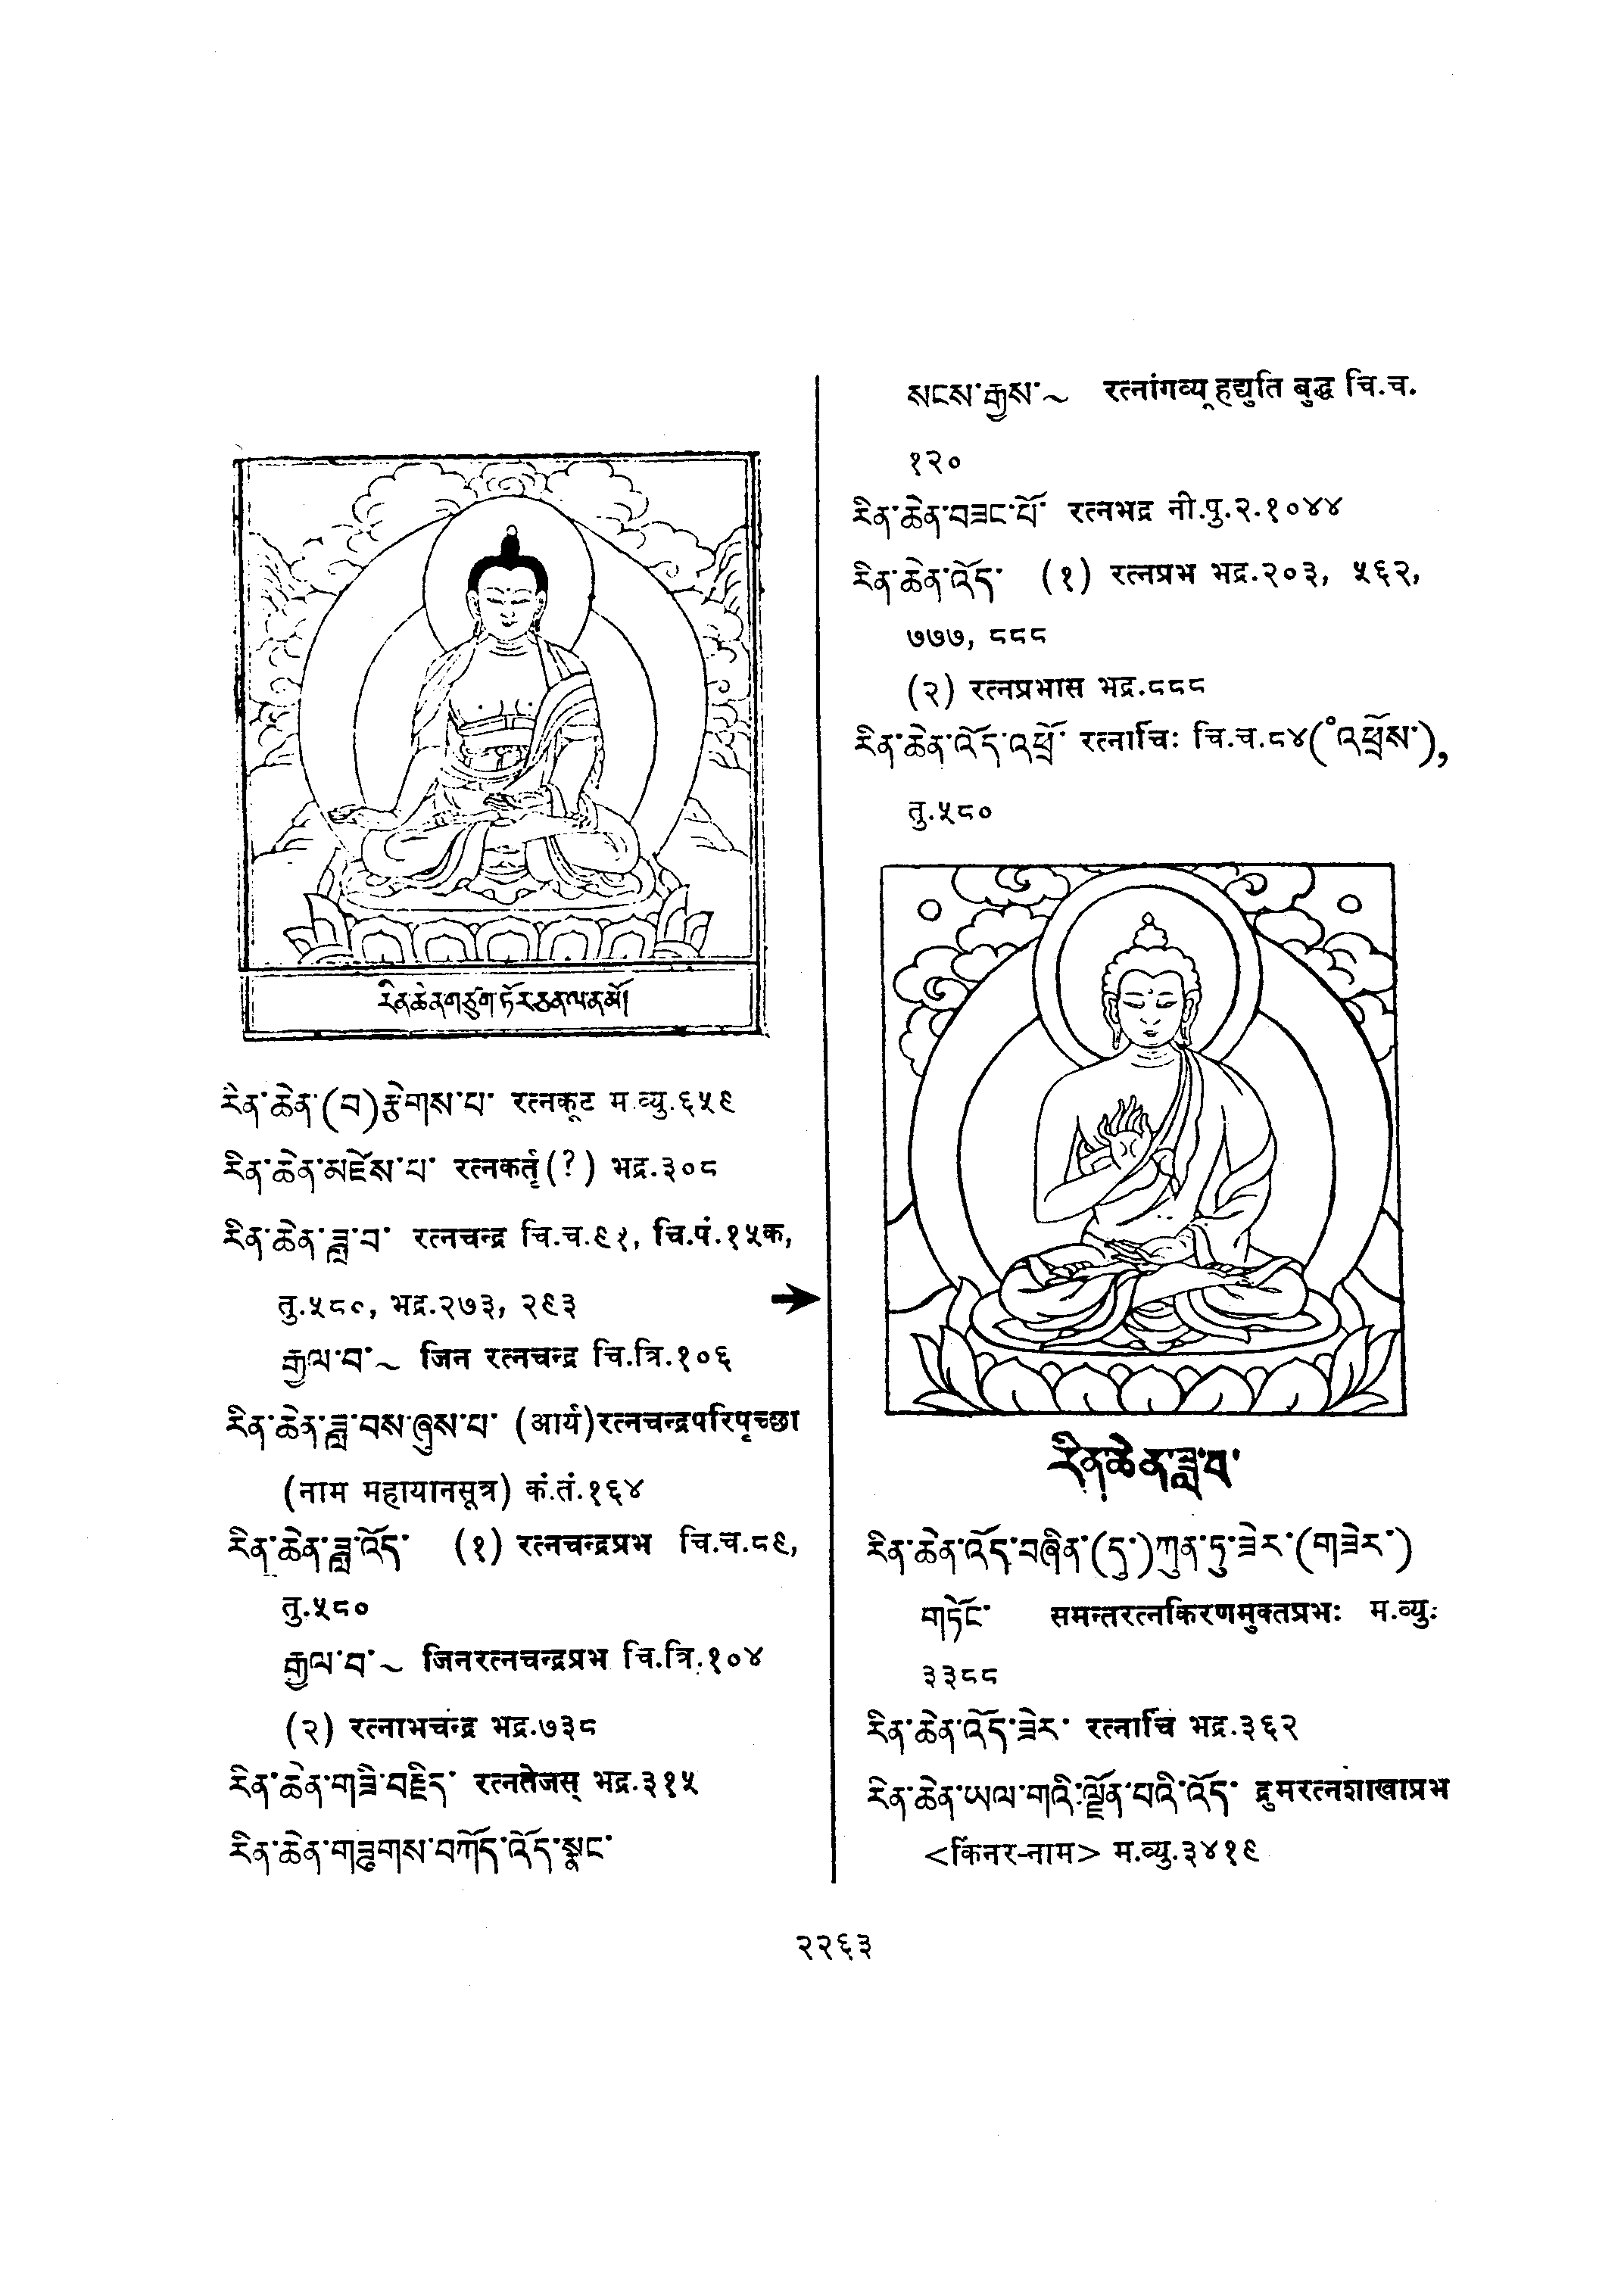 རིན་ཆེན་གཙུག་ཏོར་ཅན་ལ་ན་མོ།
རིན་ཆེན་(བ)རྩེགས་པ་ रत्नकूट म.व्यु.६५९
རིན་ཆེན་མཛོས་པ་ रत्नकर्तृ(?) भद्र.३०८
རིན་ཆེན་ཟླ་བ་ रत्नचन्द्र चि.च.९१, चि.पं.१५क,
तु.५८०, भद्र.२७३, २९३
རྒྱལ་བ་~ जिन रत्नचन्द्र चि.त्रि.१०६
རིན་ཆེན་ཟླ་བས་ཞུས་པ་ (आर्य)रत्नचन्द्रपरिपृच्छा
(नाम महायानसूत्र) कं.तं.१६४
རིན་ཆེན་ཟླ་འོད་ (१) रत्नचन्द्रप्रभ चि.च.८९,
तु.५८०
རྒྱལ་བ་~ जिनरत्नचन्द्रप्रभ चि.त्रि.१०४
(२) रत्नाभचन्द्र भद्र.७३८
རིན་ཆེན་གཟི་བརྗིད་ रत्नतेजस् भद्र.३१५
རིན་ཆེན་གཟུགས་བཀོད་འོད་སྣང་
སངས་རྒྱས་~ रत्नांगव्यूहद्युति बुद्ध चि.च.
१२०
རིན་ཆེན་བཟང་པོ་ रत्नभद्र नी.पु.२.१०४४
རིན་ཆེན་འོད་ (१) रत्नप्रभ भद्र.२०३, ५६२,
७७७, ८८८
(२) रत्नप्रभास भद्र.८८८
རིན་ཆེན་འོད་འཕྲོ་ रत्नार्चिः चि.च.८४(°འཕྲོས་),
तु.५८०
རིན་ཆེན་ཟླ་བ་
རིན་ཆེན་འོད་བཞིན་(དུ་)ཀུན་ཏུ་ཟེར་(གཟེར་)
གཏོང་ समन्तरत्नकिरणमुक्तप्रभः म.व्यु.
३३८८
རིན་ཆེན་འོད་ཟེར་ रत्नार्चि भद्र.३६२
རིན་ཆེན་ཡལ་གའི་ལྗོན་པའི་འོད་ द्रुमरत्नशाखाप्रभ
<किंनर-नाम> म.व्यु.३४१९
२२६३